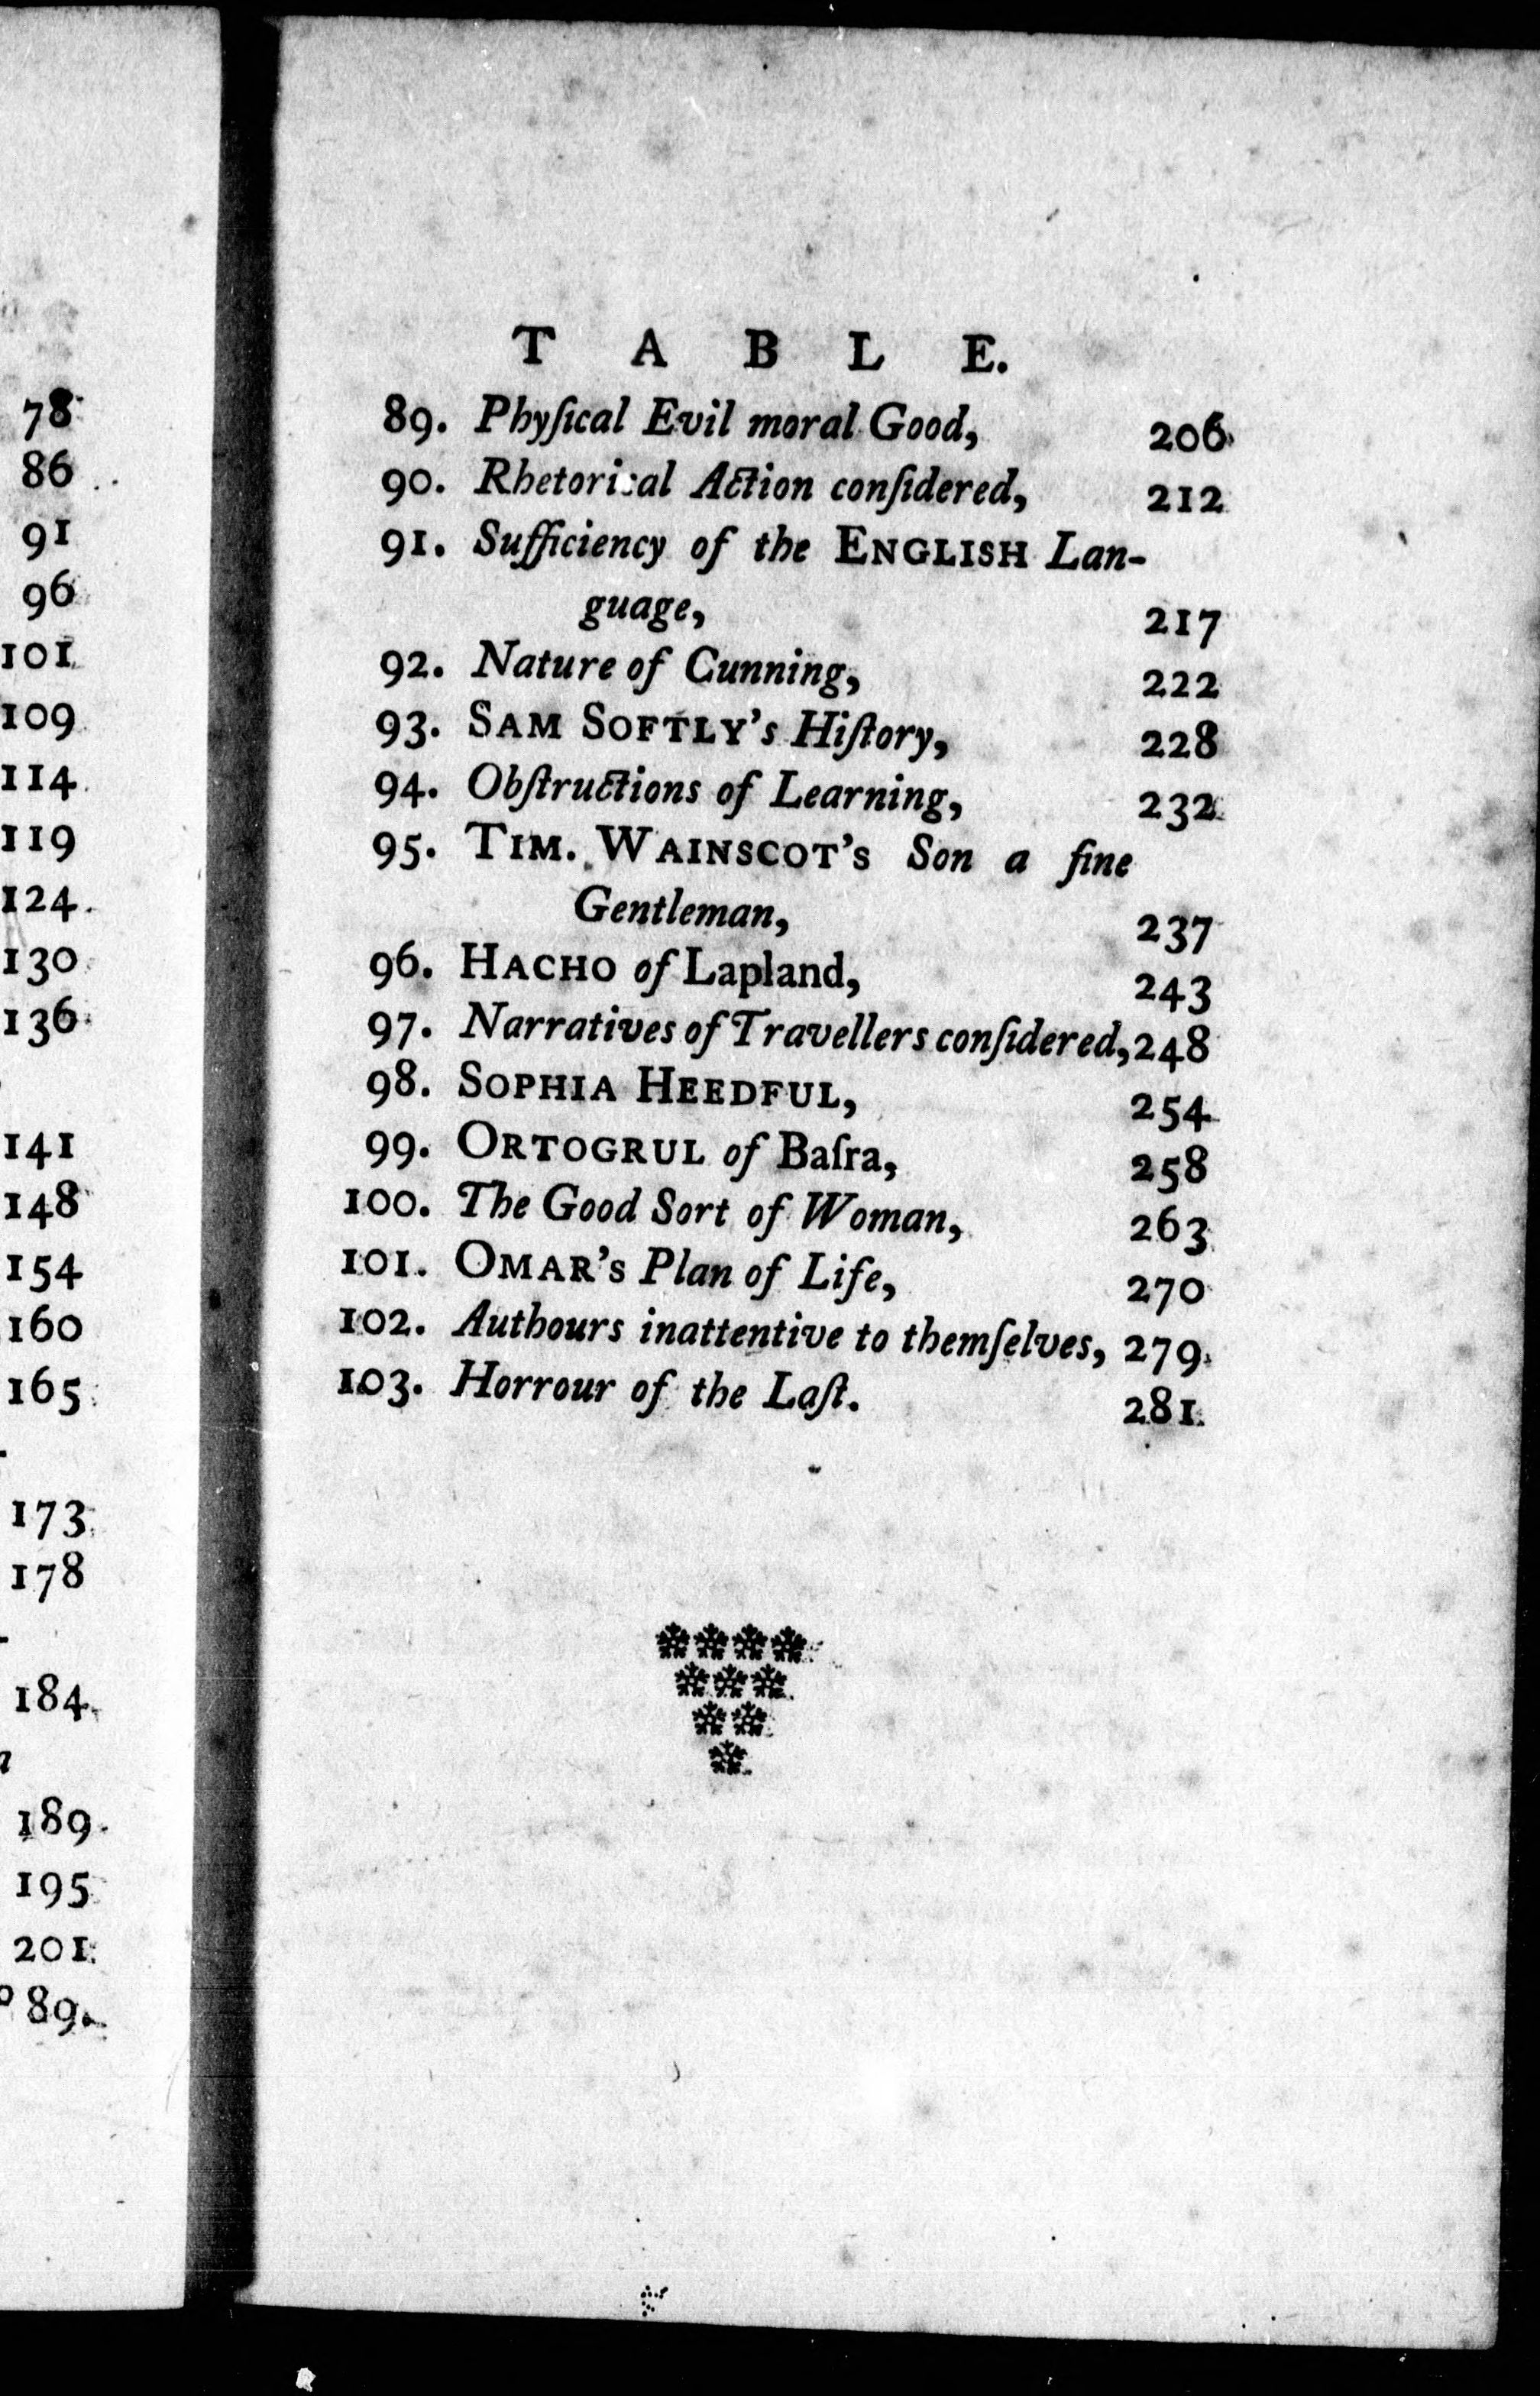 78
86
91
96
101
109
114
119
124
130
136
141
148
154
160
165
173
178
184
189
195
201
89.
T A B L E.
89. Phyſical Evil moral Good, 206
90. Rhetorical Action conſidered, 212
91. Sufficiency of the ENGLISH Lan-
guage, 217
92. Nature of Cunning, 222
93. SAM SOFTLY's Hiſtory, 228
94. Obſtructions of Learning, 232
95. TIM. WAINSCOT's Son a fine
Gentleman, 237
96. HACHO of Lapland, 243
97. Narratives of Travellers conſidered, 248
98. SOPHIA HEEDFUL, 254
99. ORTOGRUL of Baſra, 258
100. The Good Sort of Woman, 263
101. OMAR's Plan of Life, 270
102. Authours inattentive to themſelves, 279
103. Horrour of the Laſt. 281